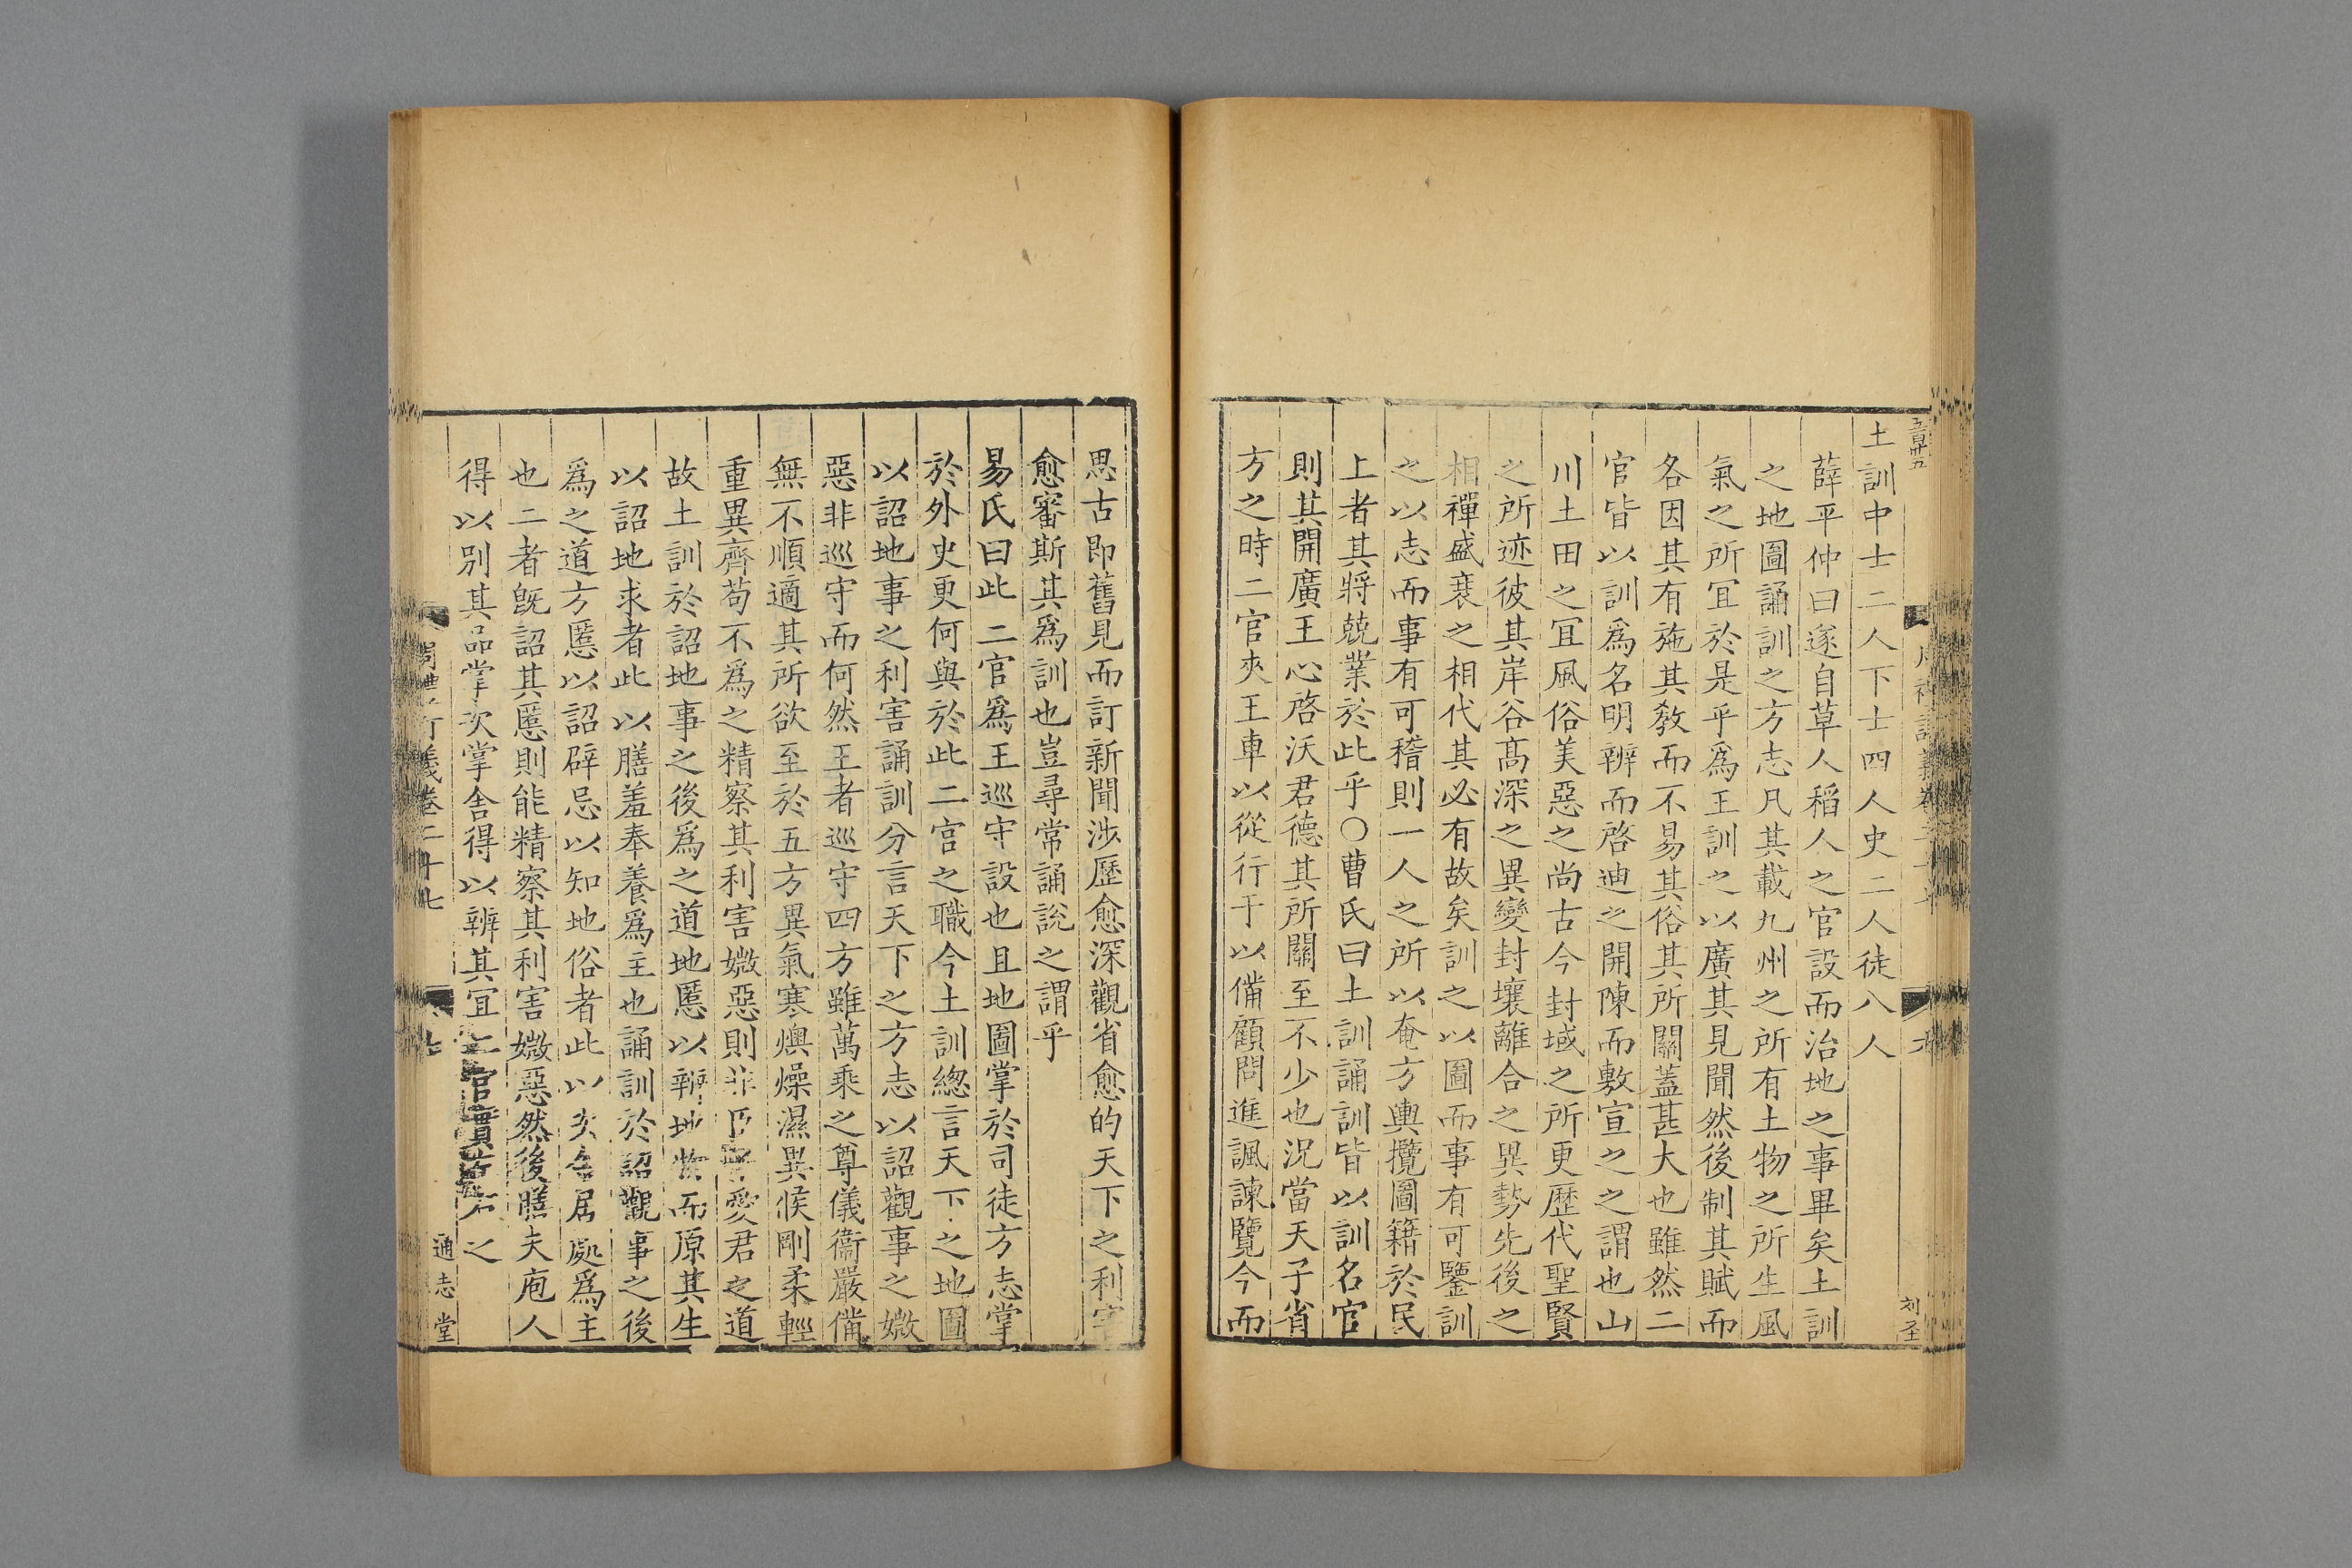 土訓中士二人下士四人史二人徒八人
薛平仲曰遂自草人稻人之官設而治地之事畢矣土訓
之地圖誦訓之方志凡其載九州之所有土物之所生風
氣之所宜於是乎爲王訓之以廣其見聞然後制其賦而
各因其有施其敎而不易其俗其所關蓋甚大也雖然二
官皆以訓爲名明辨而啓迪之開陳而敷宣之之謂也山
川土田之宜風俗美惡之尚古今封域之所更歷代聖賢
之所迹彼其岸谷髙深之異變封壤離合之異勢先後之
相禪盛衰之相代其必有故矣訓之以圖而事有可鑒訓
之以志而事有可稽則一人之所以奄方輿攬圖籍於民
上者其將兢業於此乎○曹氏曰土訓誦訓皆以訓名官
則其開廣王心啓沃君德其所關至不少也況當天子省
方之時二官夾王車以從行于以備顧問進諷諫覽今而
思古即舊見而訂新聞涉歷愈深觀省愈的天下之利害
愈審斯其爲訓也豈尋常誦說之謂乎
易氏曰此二官爲王巡守設也且地圖掌於司徒方志掌
於外史更何與於此二官之職今土訓緫言天下之地圖
以詔地事之利害誦訓分言天下之方志以詔觀事之媺
惡非巡守而何然王者巡守四方雖萬乘之尊儀衞嚴備
無不順適其所欲至於五方異氣寒燠燥濕異候剛柔輕
重異齊苟不爲之精察其利害媺惡則非臣子愛君之道
故土訓於詔地事之後爲之道地慝以辨地物而原其生
以詔地求者此以膳羞奉養爲主也誦訓於詔觀事之後
爲之道方慝以詔辟忌以知地俗者此以次舍居處爲主
也二者旣詔其慝則能精察其利害媺惡然後膳夫庖人
得以別其品掌次掌舍得以辨其宜二官實先之
周禮訂義卷二十七
通志堂